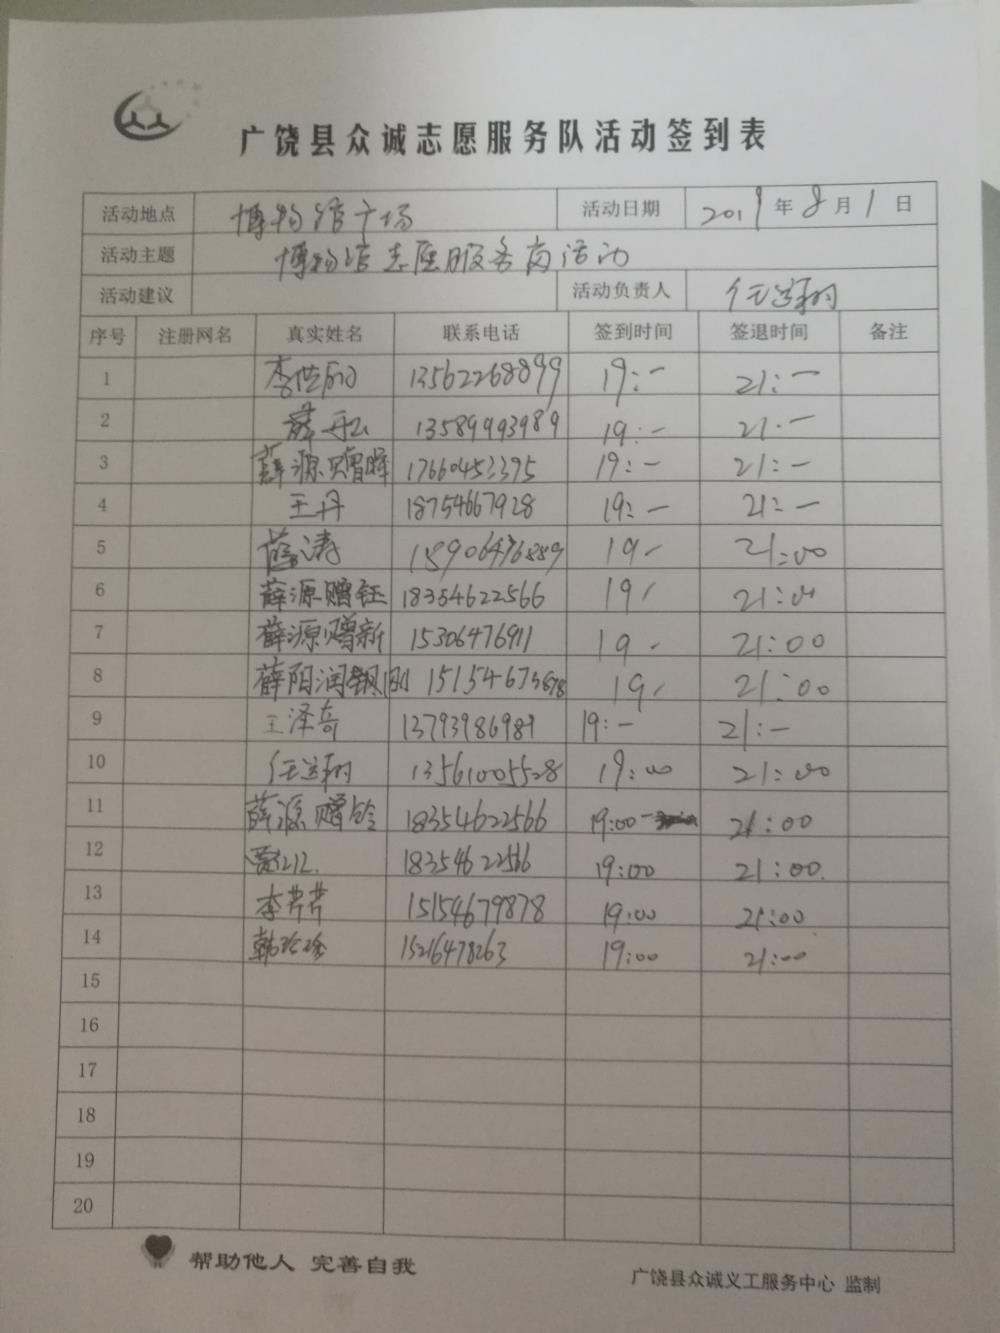 广饶县众诚志愿服务队活动签到表
活动地点 博物馆广场 活动日期 2019年8月1日
活动主题 博物馆志愿服务岗活动
活动建议 活动负责人
序号 注册网名 真实姓名 联系电话 签到时间 签退时间 备注
1 13562268899 19:一 21:一
2 薛 13589993989 19:一 21:一
3 薛源赠 17660453395 19:一 21:一
4 王丹 18754667928 19:一 21:一
5 薛涛 15906476889 19 21:00
6 薛源赠钰 18354622566 19 21:00
7 薛源赠新 15306476911 19 21:00
8 薛阳润 19 21:00
9 王泽奇 13793986989 19:一 21:一
10 13561005528 19:00 21:00
11 薛源赠铃 18354622566 19:00 21:00
12 18354622566 19:00 21:00
13 李芹芹 15154679878 19:00 21:00
14 韩玲玲 15216478263 19:00 21:00
15
16
17
18
19
20
帮助他人 完善自我
广饶县众诚义工服务中心 监制